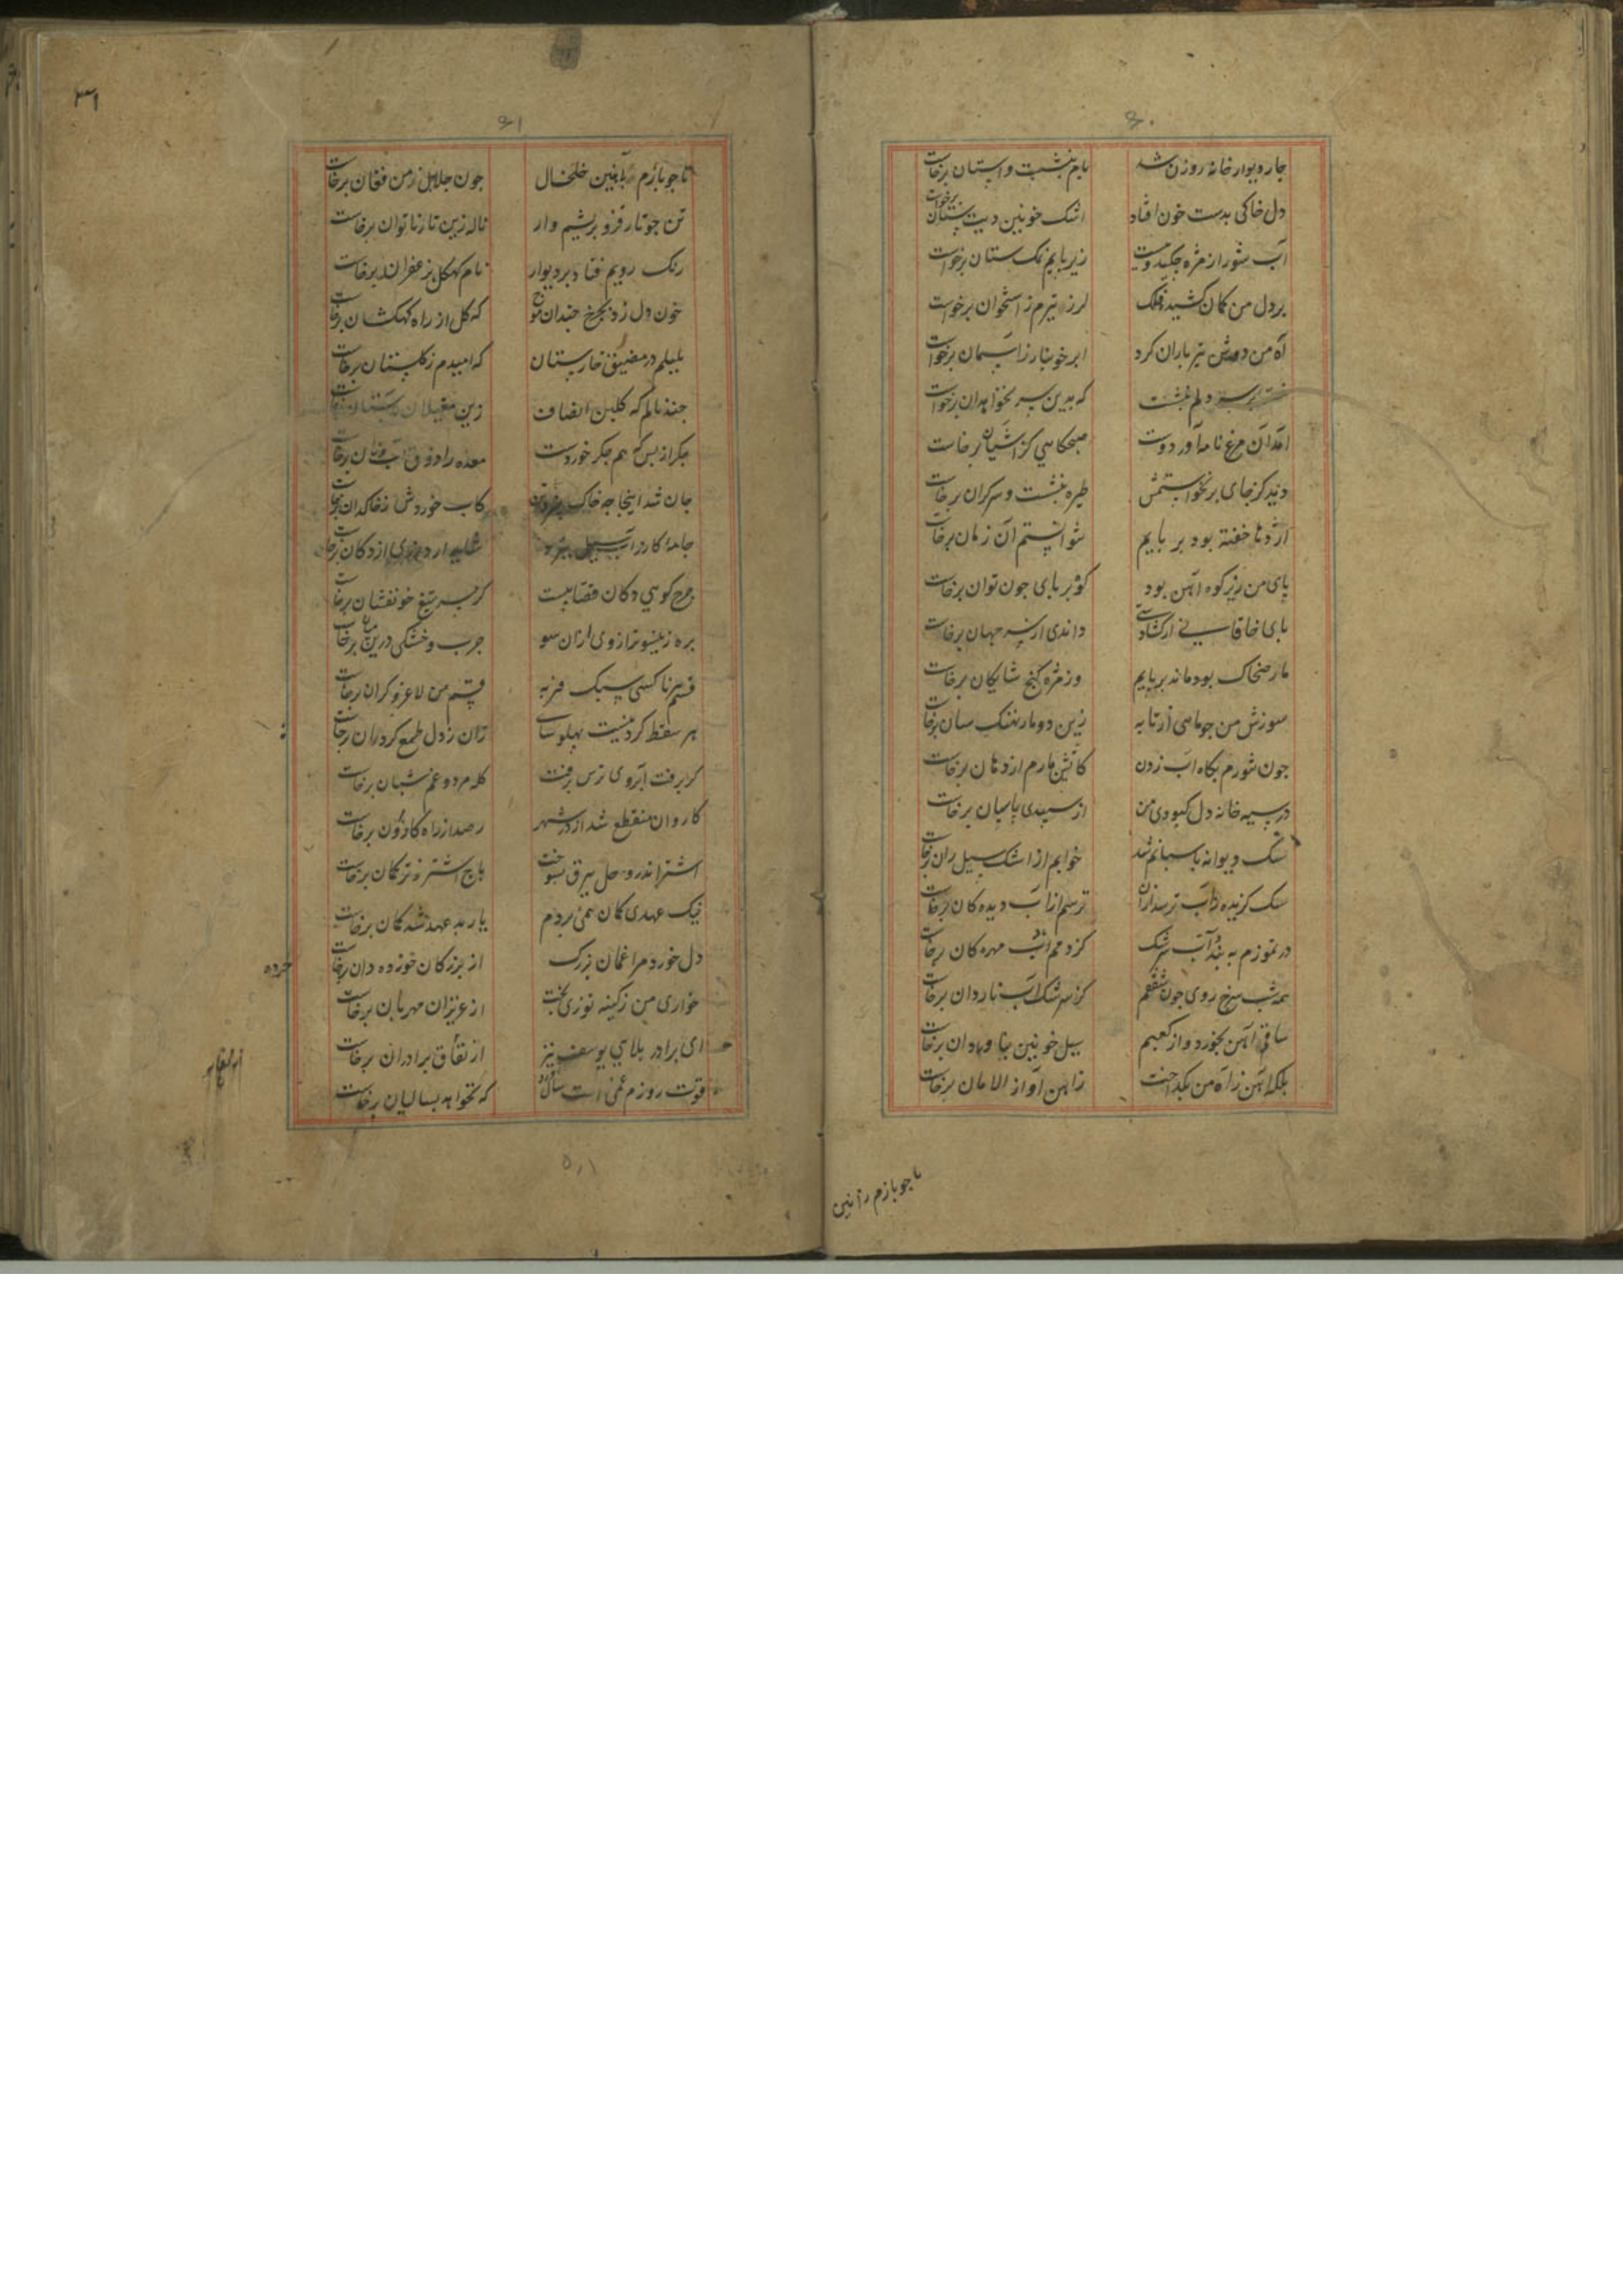 ۶۰
چار دیوار خانه روزن شد بام بنشست و استان برخاست
دل خاکی بدست خون افتاد اشک خونین دیت ستان برخواست
آب شور از مژه چکید و ببست زیر پایم نمکستان برخواست
بر دل من کمان کشید فلک لرز تیرم ز استخوان برخواست
آه من دوش تیر باران کرد ابر خونبار ز آسمان برخواست
غصه بر سر دلم نشست که بدین سر نخواهد آن برخواست
آمد آن مرغ نامه آور دوست صبحکاهی کز آشیان برخاست
دید کز جای برنخواستمش طیره بنشست و سرکران برخاست
اژدها خفته بود بر پایم نتوانستم آن زمان برخاست
پای من زیر کوه آهن بود کوه بر پای چون توان برخاست
پای خاقانی ار کشادستی داندی از سر جهان برخاست
مار ضحاک بود ماند بر پایم وز مژه کنج شایکان برخاست
سوزش من چو ماهی از تابه زین دو مار نهنک سان برخاست
چون تنورم بکاه آب زدن کاتشین مارم از دهان برخاست
در سیه خانه دل کبودی من از سپیدی پاسبان برخاست
سک دیوانه پاسبانم شد خوابم از اشک سیل ران برخاست
سک کزیده ز آب ترسد از آن ترسم از آب دیده کان برخاست
در تموزم به بندد آب سرشک کز دمم باد مهره کان برخاست
همه شب سرخ روی چون شفقم کز سرشک آب ناردان برخاست
ساقم آهن بخورد و از کعبم سیل خونین بناودان برخاست
بلکه آهن ز آه من بکداخت ز آهن آواز الامان برخاست
تا چو بازم در آهنین
۳۱
۶۱
تا چو بازم در آهنین خلخال چون جلاجل ز من فغان برخاست
تن چو تار قز و بریشم وار ناله زین تار ناتوان برخاست
رنک رویم فتاد بر دیوار نام کهکل بزعفران برخاست
خون دل زد بچرخ چندان موج که کل از راه کهکشان برخاست
بلبلم در مضیق خارستان که امیدم ز کلستان برخاست
چند نالم که کلبن انصاف زین مغیلان برخاست
جکر از بس که هم جکر خوردست معده را ذوق آب و نان برخاست
جان شد اینجا چه خاک کاب خوردش ز خاکدان برخاست
جامه کازر آب سیل ببرد شاید ار درزی از دکان برخاست
چرخ کوهی دکان قصابیست کز سر تیغ خونفشان برخاست
بره زینسو ترازوی ازان سو چرب و خشکی درین میان برخاست
قسم هر ناکسی سبک فربه قسم من لاغر و کران برخاست
هر سقط کردنیست پهلوسای زان ز دل طمع کردران برخاست
کر برفت آبروی ترس برفت کله مرد و غم شبان برخاست
کاروان منقطع شد از در شهر رصد از راه کاروان برخاست
اشتر اندر وحل ببرق بسوخت باج اشتر ز ترکمان برخاست
نیک عهدی کمان همی بردم یار بد عهد شد کمان برخاست
دل خورد مرا غمان بزرک از بزرکان خورده دان برخاست
خرده
خواری من ز کینه توزی بخت از عزیزان مهربان برخاست
ای برادر بلای یوسف نیز از نفاق برادران برخاست
قوت روزم غمی است سال آورد که نخواهد بسالیان برخاست